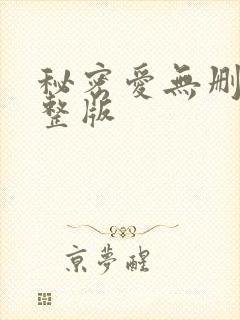 秘密愛無删
整版
京夢醒